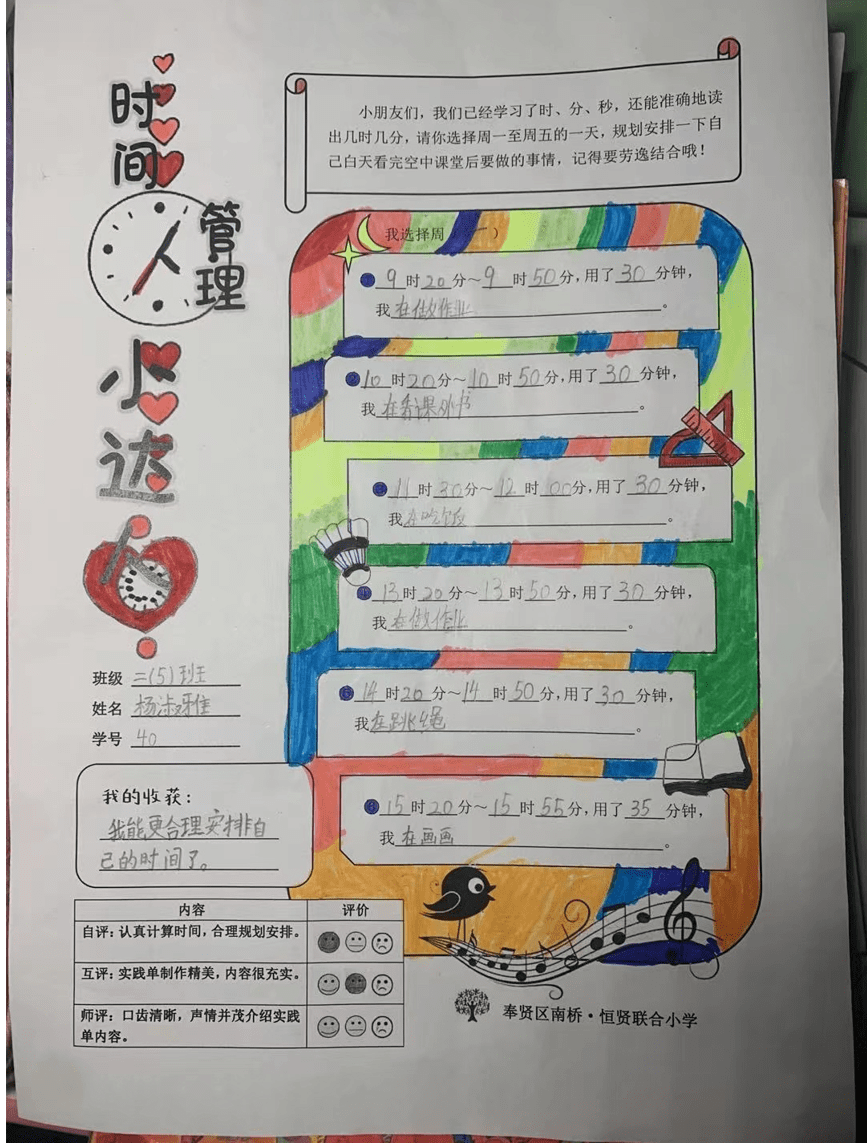 时
间
管
理
小
达
人
小朋友们，我们已经学习了时、分、秒，还能准确地读
出几时几分，请你选择周一至周五的一天，规划安排一下自
己白天看完空中课堂后要做的事情，记得要劳逸结合哦！
我选择周（一）
①9时20分～9时50分，用了30分钟，
我在做作业。
②10时20分～10时50分，用了30分钟，
我在看课外书。
③11时30分～12时00分，用了30分钟，
我在吃饭。
④13时20分～13时50分，用了30分钟，
我在做作业。
⑤14时20分～14时50分，用了30分钟，
我在跳绳。
⑥15时20分～15时55分，用了35分钟，
我在画画。
班级 二(5)班
姓名 杨淑雅
学号 40
我的收获：
我能更合理安排自
己的时间了。
内容 评价
自评：认真计算时间，合理规划安排。
互评：实践单制作精美，内容很充实。
师评：口齿清晰，声情并茂介绍实践
单内容。
奉贤区南桥·恒贤联合小学